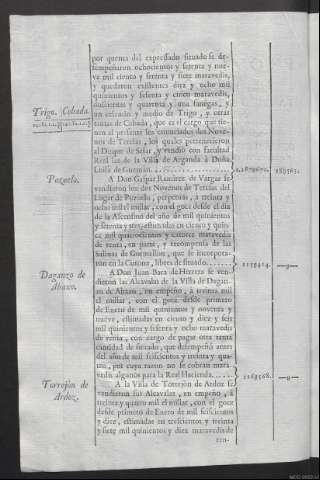 por quenta del expressado situado se de-
sempeñaron ochocientos y setenta y nue-
ve mil ciento y setenta y siete maravedis,
y quedaron existentes diez y ocho mil
quinientos y sesenta y cinco maravedis,
Trigo. Cebada.
y quarenta y una fanegas, y
un celemin y medio de Trigo, y otras
tantas de Cebada, que es el cargo que tie-
nen al presente los enunciados dos Nove-
nos de Tercias, los quales pertenecieron
al Duque de Sesar, y vendiò con facultad
Real los de la Villa de Arganda à Doña
Luisa de Guzmàn.
18U565.
Pozuelo.
A Don Gaspar Ramirez de Vargas se
vendieron los dos Novenos de Tercias del
Lugar de Pozuelo, perpetuas, à treinta y
ocho mil el millar, con el goce desde el dia
de la Ascension del año de mil quinientos
y setenta y tres, estimadas en ciento y quin-
ce mil quatrocientos y catorce maravedis
de renta, en parte, y recompensa de las
Salinas de Gormellon, que se incorpora-
ron en la Corona, libres de situado.
U115U414.
Daganzo de Abaxo.
A Don Juan Baca de Herrera se ven-
dieron las Alcavalas de la Villa de Dagan-
zo de Abaxo, en empeño, à treinta mil
el millar, con el goce desde primero
de Enero de mil quinientos y noventa y
nueve, estimadas en ciento y diez y seis
mil quinientos y sesenta y ocho maravedis
de renta, con cargo de pagar otra tanta
cantidad de situado, que desempeñò antes
del año de mil seiscientos y treinta y qua-
tro, por cuya razon no se cobran mara-
vedis algunos para la Real Hacienda.
U116U568.
Torrejòn de Ardoz.
A la Villa de Torrejòn de Ardoz se
vendieron sus Alcavalas, en empeño, à
treinta y quatro mil el millar, con el goce
desde primero de Enero de mil seiscientos
y diez, estimadas en trescientos y treinta
y siete mil quinientos y diez maravedis de
ren-